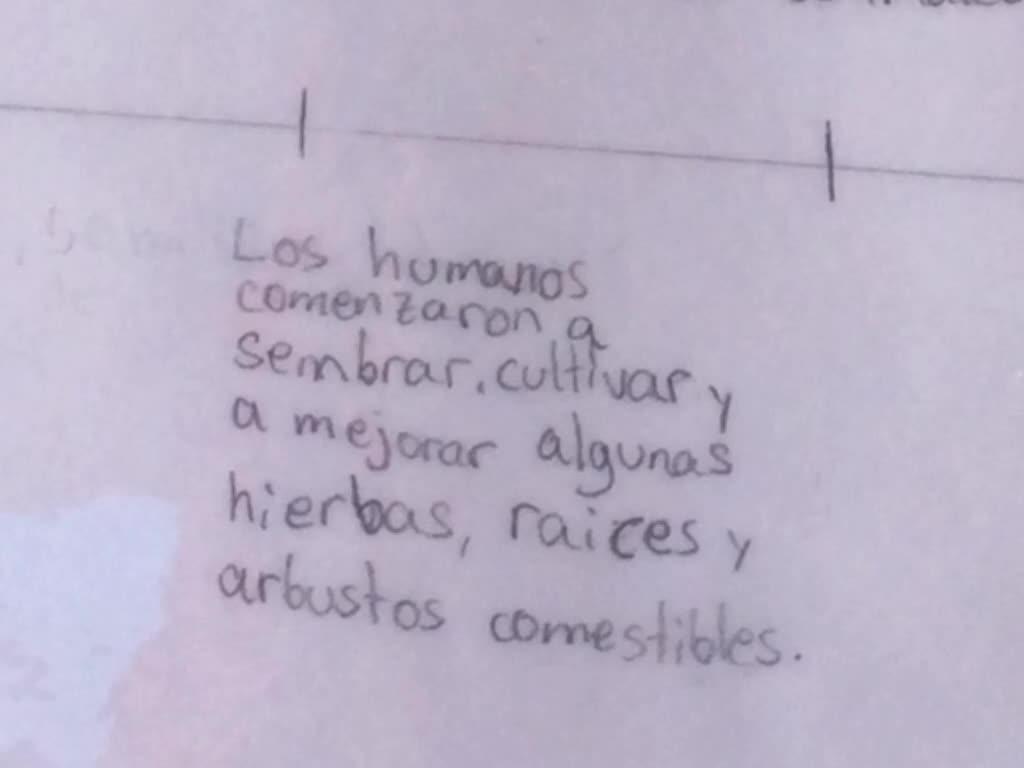 Los humanos
comenzaron a
sembrar, cultivar y
a mejorar algunas
hierbas, raices y
arbustos comestibles.